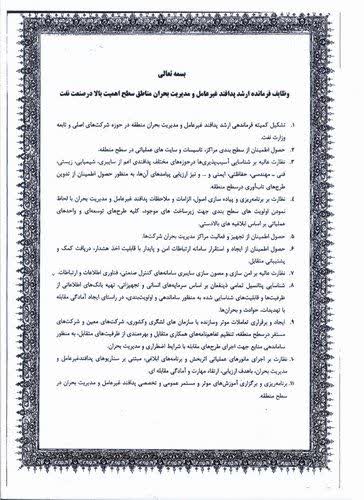 بسمه تعالی
وظایف فرمانده ارشد پدافند غیرعامل و مدیریت بحران مناطق سطح اهمیت بالا در صنعت نفت
۱. تشکیل کمیته فرماندهی ارشد پدافند غیرعامل و مدیریت بحران منطقه در حوزه شرکت‌های اصلی و تابعه
وزارت نفت.
۲. حصول اطمینان از سطح بندی مراکز، تاسیسات و سایت های عملیاتی در سطح منطقه.
۳. نظارت عالیه بر شناسایی آسیب‌پذیری‌ها در حوزه‌های مختلف پدافندی اعم از سایبری، شیمیایی، زیستی،
فنی – مهندسی، حفاظتی، ایمنی و... و نیز ارزیابی پیامدهای آن‌ها، به منظور حصول اطمینان از تدوین
طرح‌های تاب‌آوری در سطح منطقه.
۴. نظارت بر برنامه‌ریزی و پیاده سازی اصول، الزامات و ملاحظات پدافند غیرعامل و مدیریت بحران با لحاظ
نمودن اولویت های سطح بندی جهت زیرساخت های موجود، کلیه طرح‌های توسعه‌ای و واحدهای
عملیاتی بر اساس ابلاغیه های بالادستی.
۵. حصول اطمینان از تجهیز و فعالیت مراکز مدیریت بحران شرکت‌ها.
۶. حصول اطمینان از ایجاد و استقرار سامانه ارتباطات امن و پایدار با قابلیت اخذ هشدار، دریافت کمک و
پشتیبانی متقابل.
۷. نظارت عالیه بر امن سازی و مصون سازی سایبری سامانه‌های کنترل صنعتی، فناوری اطلاعات و ارتباطات.
۸. شناسایی پتانسیل تمامی ذینفعان بر اساس سرمایه‌های انسانی و تجهیزاتی، تهیه بانک‌های اطلاعاتی از
ظرفیت‌ها و قابلیت‌های شناسایی شده به منظور ساماندهی و اولویت‌بندی، در راستای ایجاد آمادگی مقابله
با تهدیدات، حوادث و بحران‌ها.
۹. ایجاد و برقراری تعاملات موثر و سازنده با سازمان های لشگری و کشوری، شرکت‌های معین و شرکت‌های
مستقر در سطح منطقه، تنظیم تفاهم‌نامه‌های همکاری متقابل و بهره‌مندی از ظرفیت‌های متقابل، به منظور
ساماندهی منابع جهت اجرای طرح‌های مقابله با شرایط اضطراری و مدیریت بحران.
۱۰. نظارت بر اجرای مانورهای عملیاتی اثربخش و برنامه‌های ابلاغی، مبتنی بر سناریوهای پدافندغیرعامل و
مدیریت بحران، باهدف ارزیابی، ارتقاء مهارت و آمادگی مقابله ای.
۱۱. برنامه‌ریزی و برگزاری آموزش‌های موثر و مستمر عمومی و تخصصی پدافند غیرعامل و مدیریت بحران در
سطح منطقه.